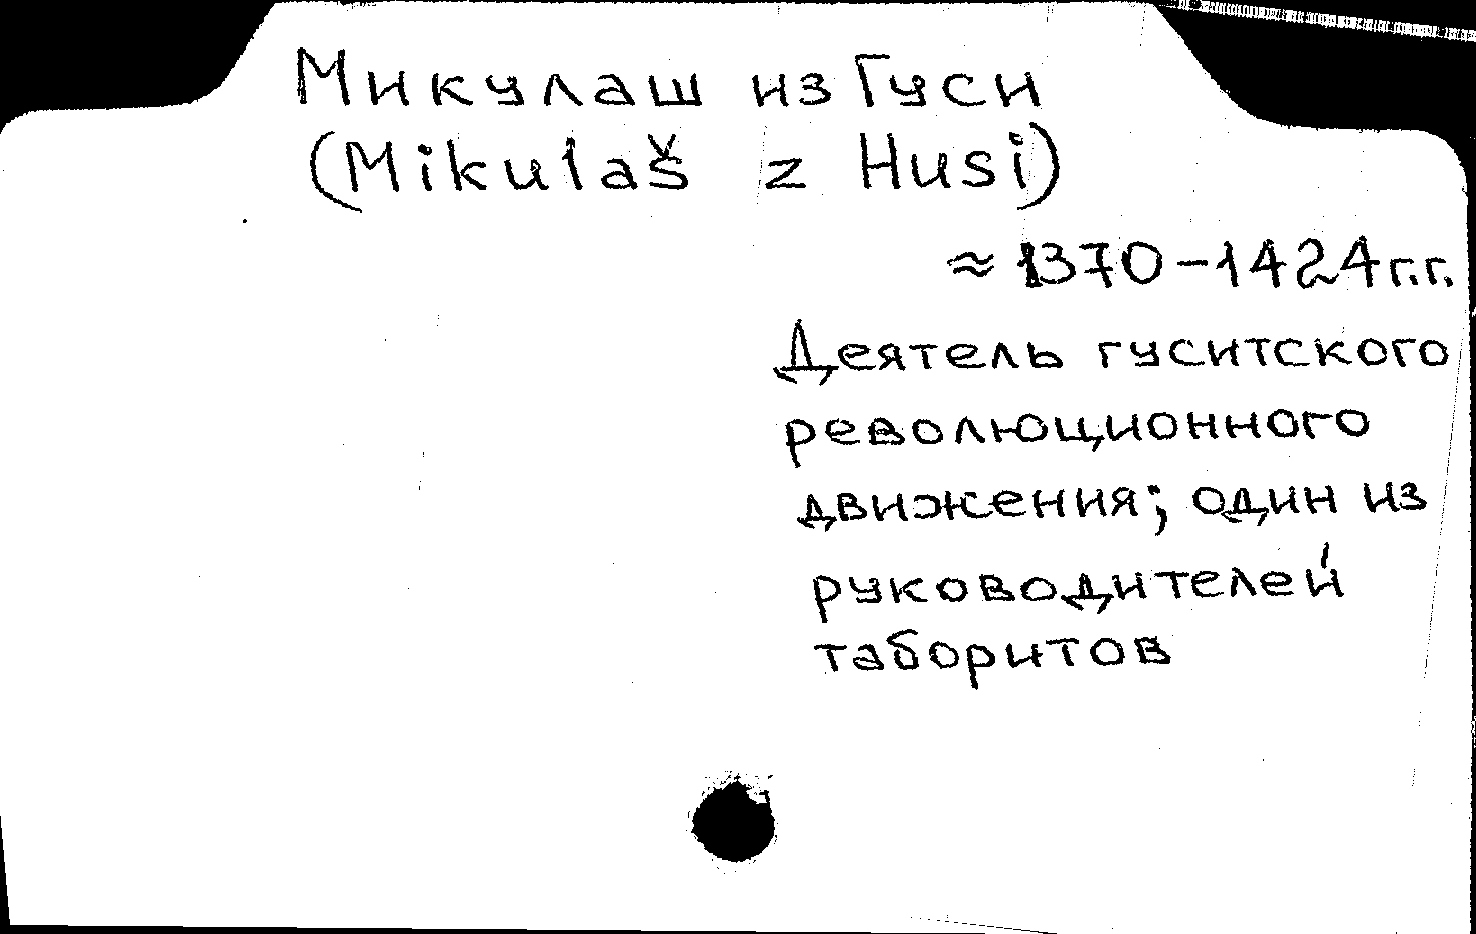 Микулаш из Гуси
(Mikulaš z Husi)
≈ 1370-1424 г.г.
Деятель гуситского
революционного
движения; один из
руководителей
таборитов